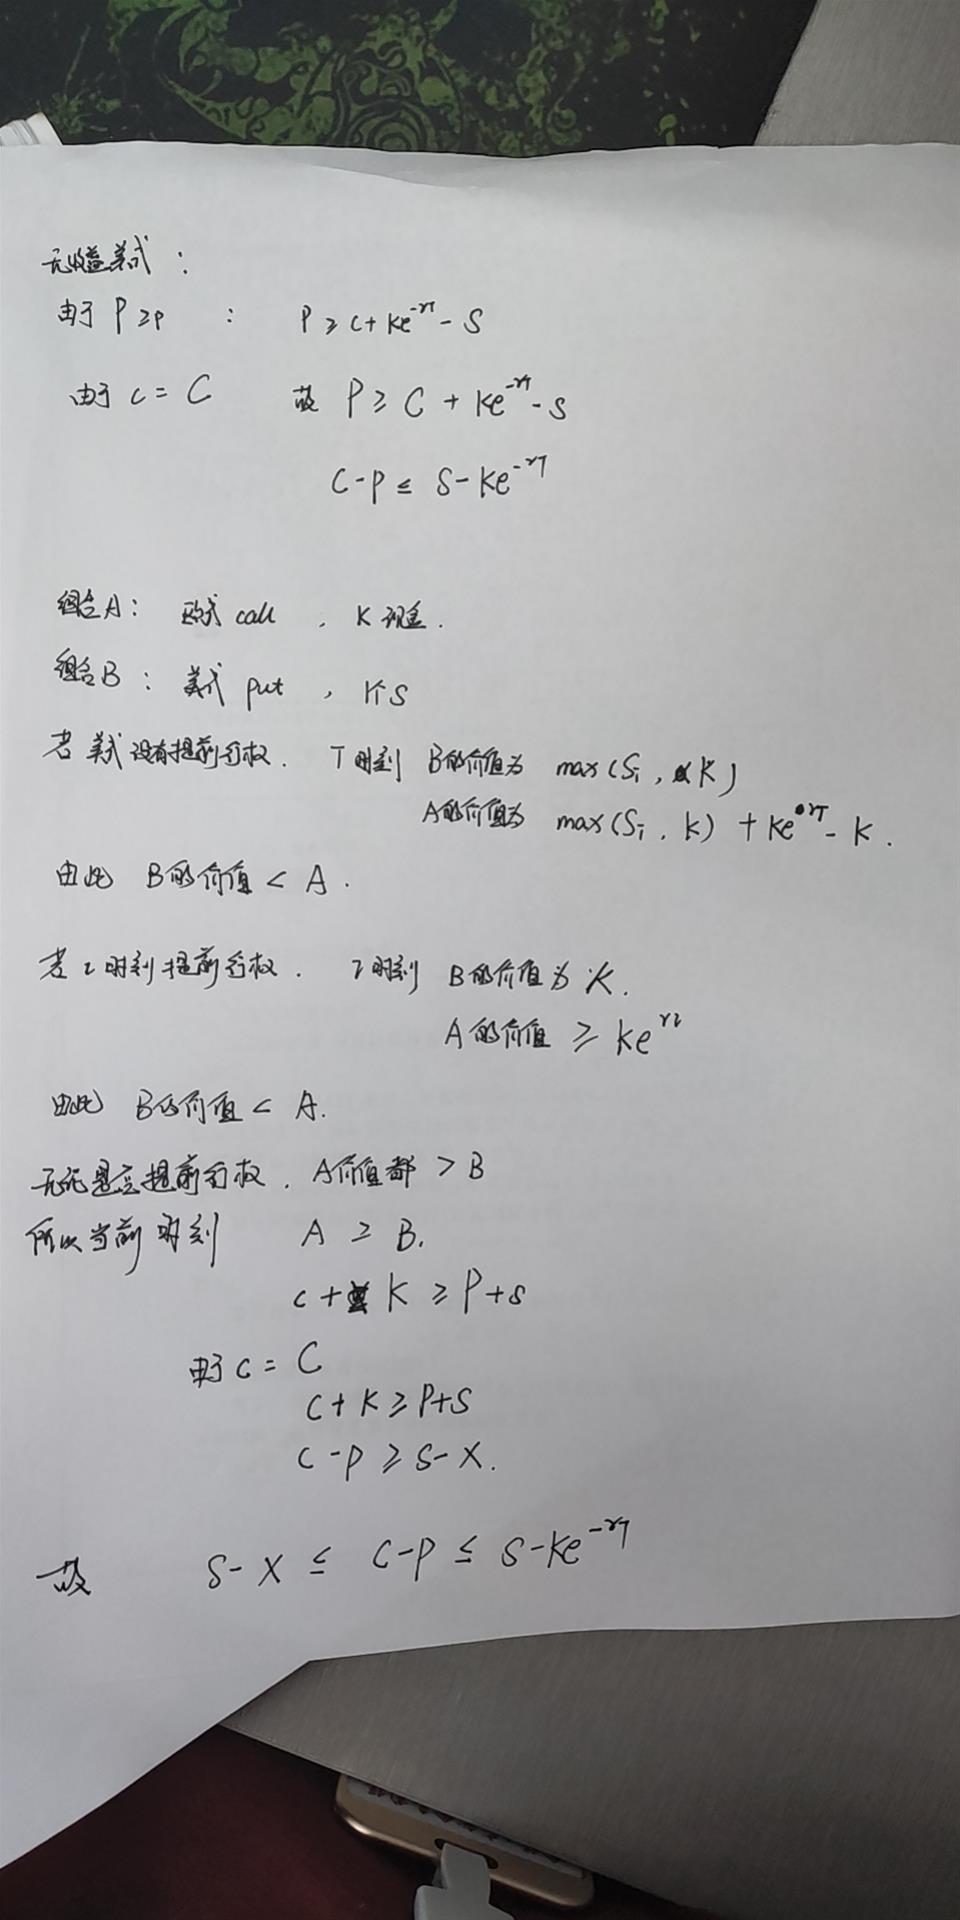 无收益美式：
由于 P≥p : P ≥ c+Ke^{-rT} - S
由于 c = C 故 P ≥ C + Ke^{-rT} - S
C-P ≤ S-Ke^{-rT}
组合A： 欧式 call , K 现金.
组合B： 美式 put , 1个S
若美式没有提前行权. T时刻 B的价值为 max(S_T, K)
A的价值为 max(S_T, K) + Ke^{rT} - K.
由此 B的价值 < A.
若τ时刻提前行权. τ时刻 B的价值为 K.
A的价值 ≥ Ke^{rτ}
由此 B的价值 < A.
无论是否提前行权. A价值都 > B
所以当前时刻 A ≥ B.
c + K ≥ P+S
由于 c = C
C+K ≥ P+S
C-P ≥ S-X.
故 S-X ≤ C-P ≤ S-Ke^{-rT}